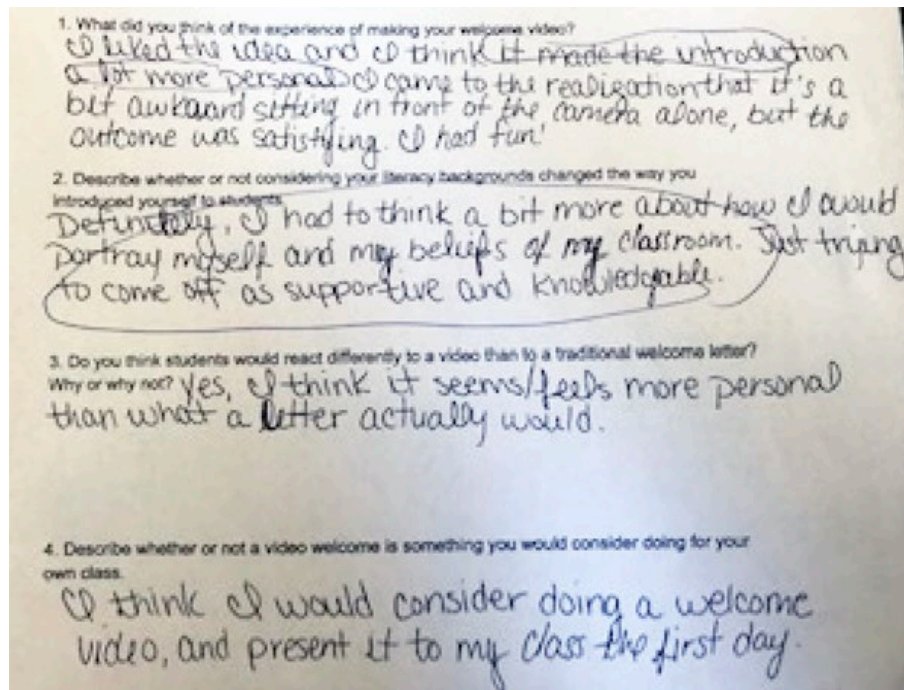 1. What did you think of the experience of making your welcome video?
I liked the idea and I think it made the introduction
a lot more personal. I came to the realization that it's a
bit awkward sitting in front of the camera alone, but the
outcome was satisfying. I had fun!
2. Describe whether or not considering your literacy backgrounds changed the way you
introduced yourself to students.
Definitely, I had to think a bit more about how I would
portray myself and my beliefs of my classroom. Just trying
to come off as supportive and knowledgable.
3. Do you think students would react differently to a video than to a traditional welcome letter?
Why or why not? Yes, I think it seems/feels more personal
than what a letter actually would.
4. Describe whether or not a video welcome is something you would consider doing for your
own class.
I think I would consider doing a welcome
video, and present it to my class the first day.